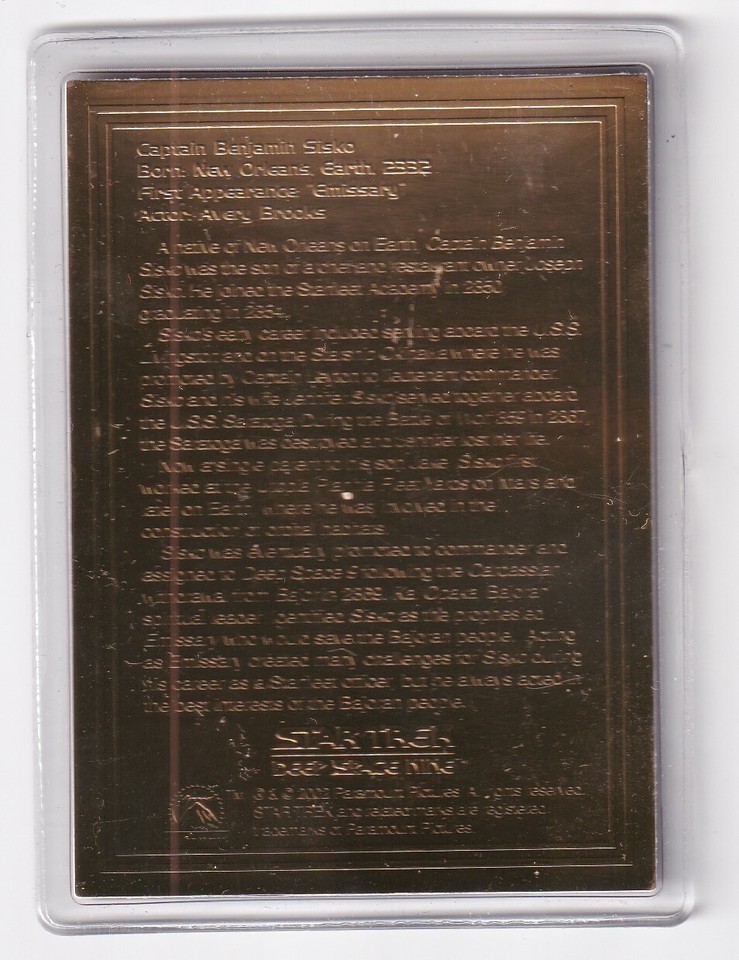 Captain Benjamin Sisko
Born: New Orleans, Earth, 2332
First Appearance "Emissary"
Actor: Avery Brooks
A native of New Orleans on Earth, Captain Benjamin
Sisko was the son of a chef and restaurant owner, Joseph
Sisko. He joined the Starfleet Academy in 2350
graduating in 2354.
Sisko's early career included serving aboard the U.S.S.
Livingston and on the Starship Okinawa where he was
promoted by Captain Leyton to lieutenant commander.
Sisko and his wife Jennifer Sisko served together aboard
the U.S.S. Saratoga. During the Battle of Wolf 359 in 2367
the Saratoga was destroyed and Jennifer lost her life.
Now a single parent to his son, Jake, Sisko first
worked at the Utopia Planitia Fleet Yards on Mars and
later on Earth where he was involved in the
construction of orbital habitats.
Sisko was eventually promoted to commander and
assigned to Deep Space 9 following the Cardassian
withdrawal from Bajor in 2369. Kai Opaka, Bajoran
spiritual leader, identified Sisko as the prophesied
Emissary who would save the Bajoran people. Acting
as Emissary created many challenges for Sisko during
his career as a Starfleet officer, but he always acted in
the best interests of the Bajoran people.
STAR TREK
DEEP SPACE NINE™
™ ® & © 2002 Paramount Pictures. All rights reserved.
STAR TREK and related marks are registered
trademarks of Paramount Pictures.